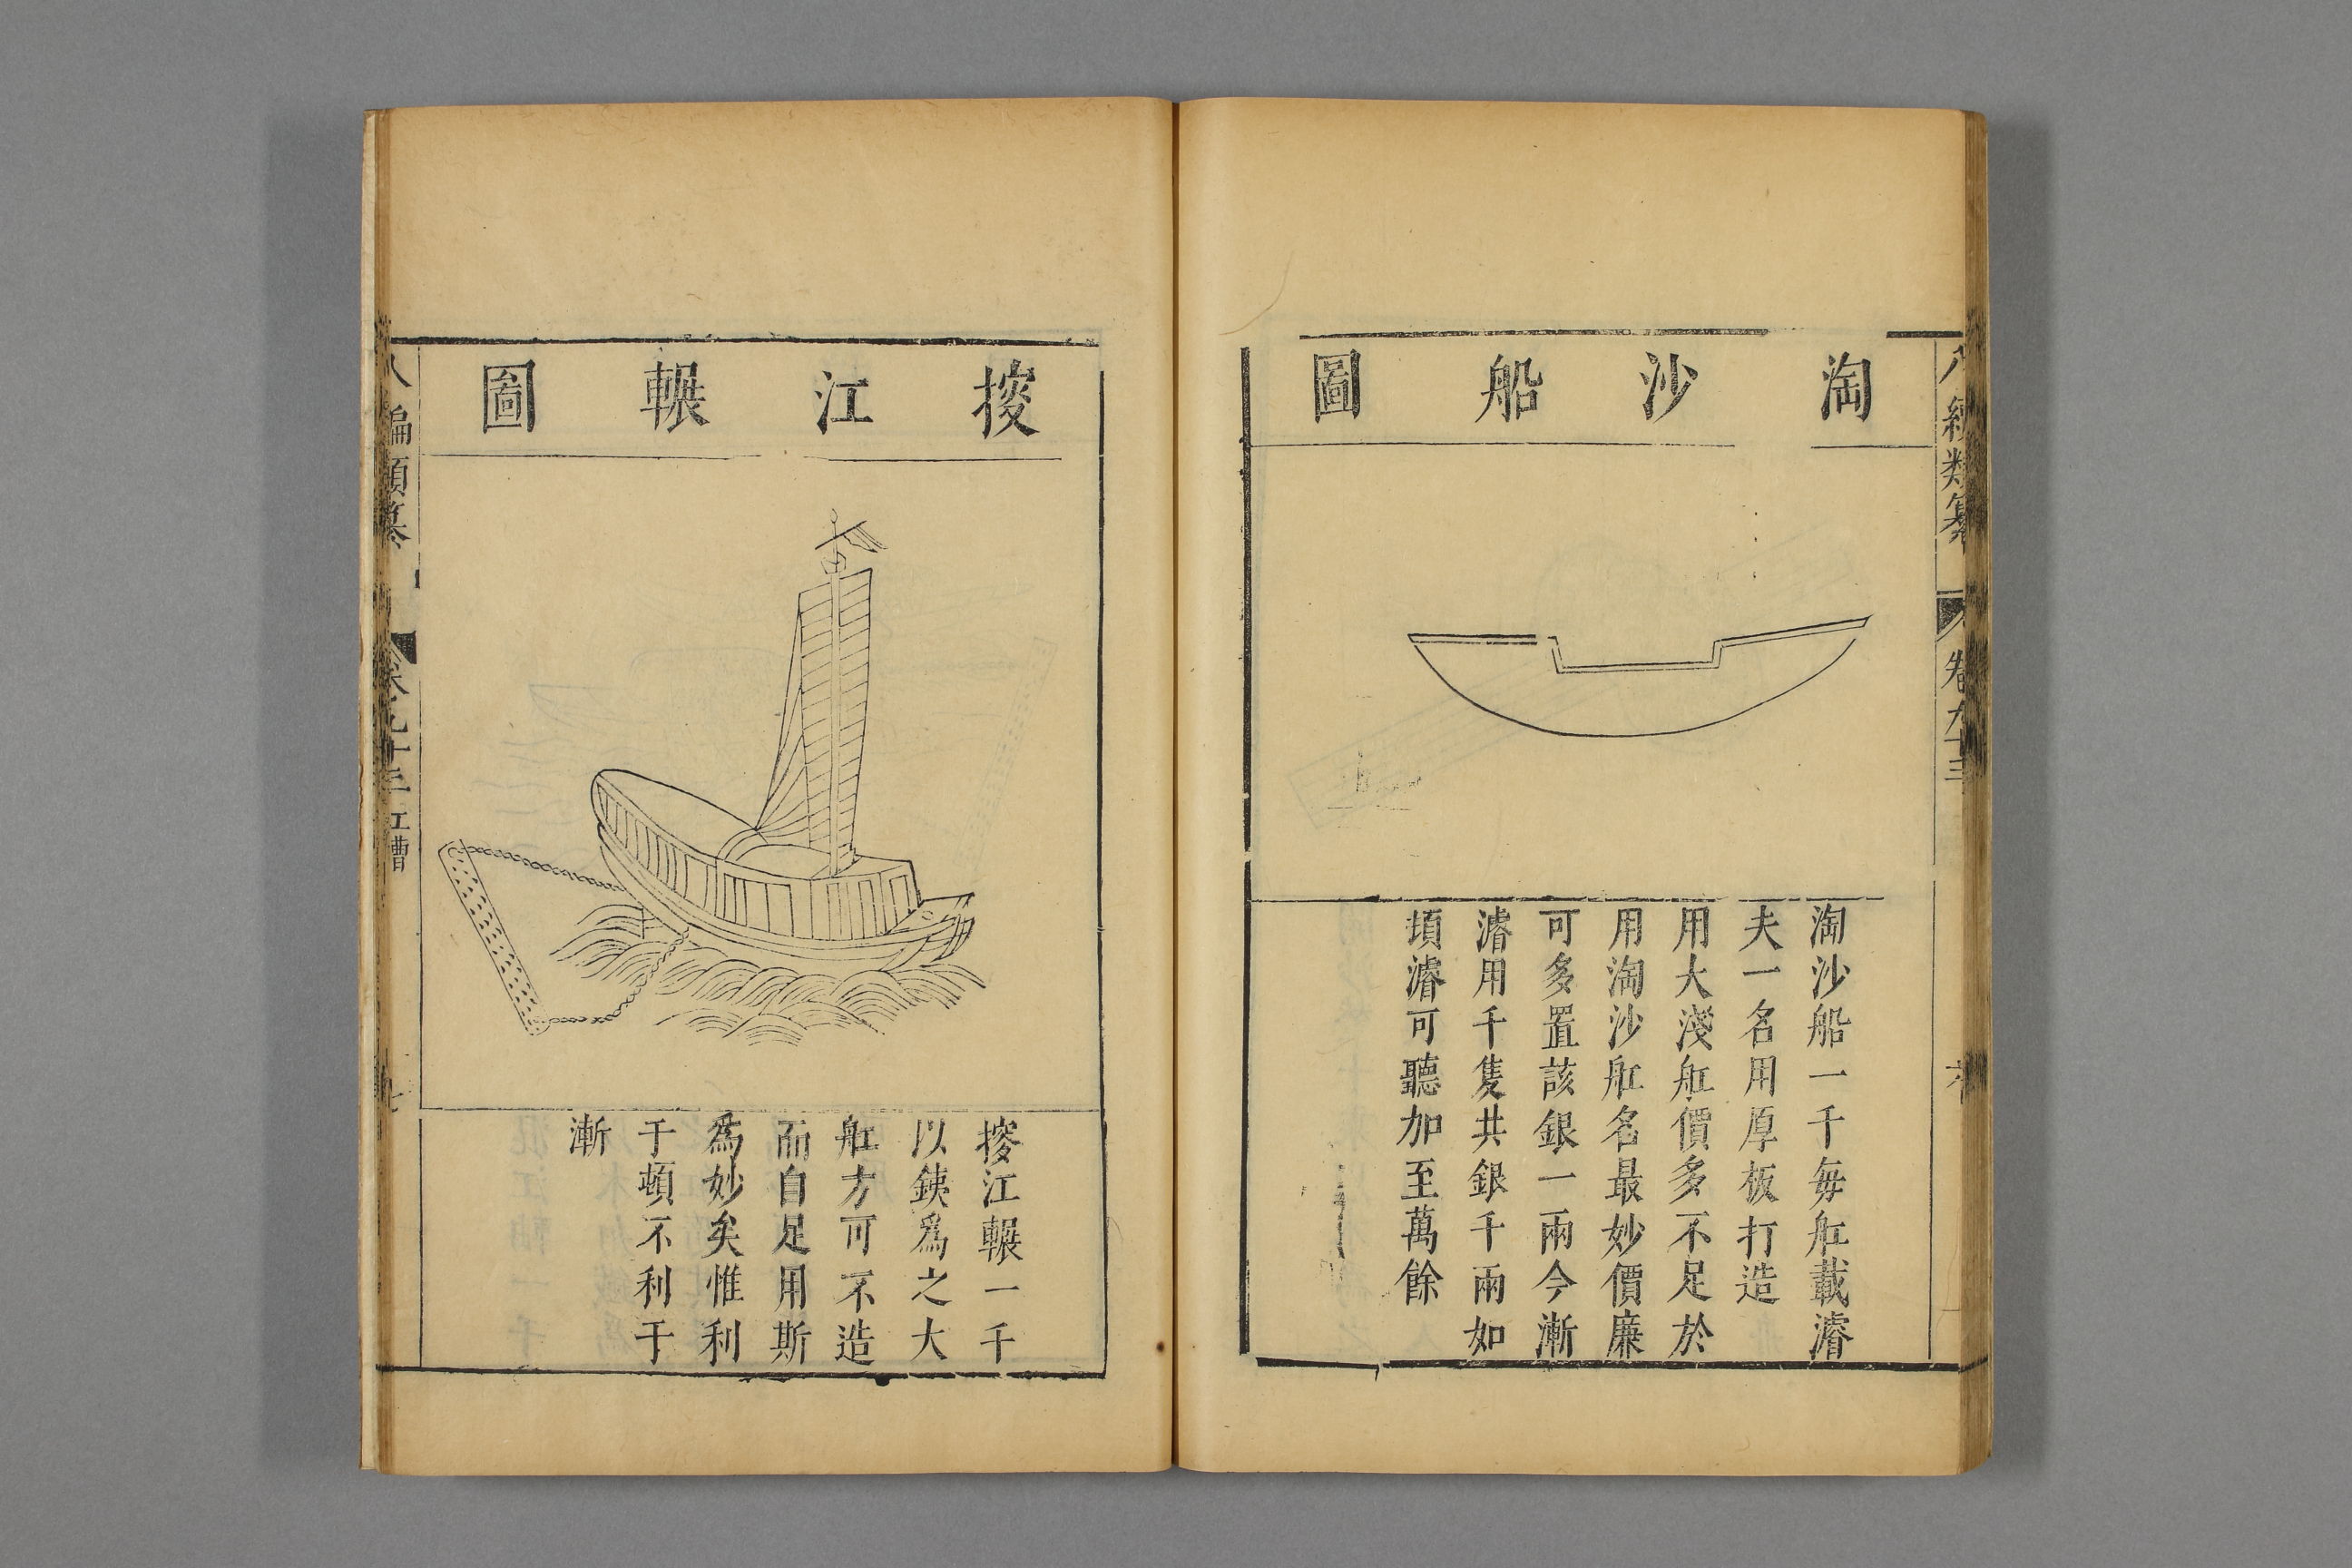 八編類纂 卷九十三 六
淘沙船圖
淘沙船一千每舡載濬
夫一名用厚板打造
用大淺舡價多不足於
用淘沙舡名最妙價廉
可多置該銀一兩今漸
濬用千隻共銀千兩如
頃濬可聽加至萬餘
㨰江輾圖
㨰江輾一千
以鉄爲之大
舡方可不造
而自足用斯
爲妙矣惟利
于頓不利于
漸
八編類纂 卷九十三 江漕 七